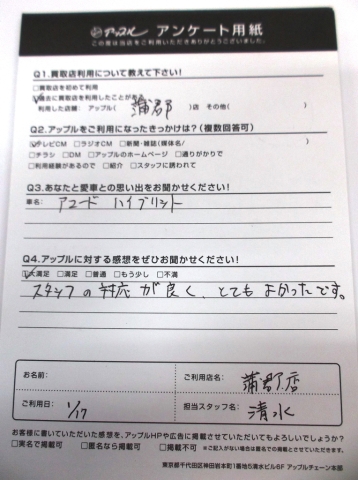 アップル アンケート用紙
この度は当店をご利用いただきありがとうございました。
Q1.買取店利用について教えて下さい!
□買取店を初めて利用
☑過去に買取店を利用したことがある
利用した店舗: アップル( 蒲郡 )店 その他( )
Q2.アップルをご利用になったきっかけは?(複数回答可)
☑テレビCM □ラジオCM □新聞・雑誌(媒体名/ )
□チラシ □DM □アップルのホームページ □通りがかりで
□利用経験があるので □紹介 □スタッフに誘われて
Q3.あなたと愛車との思い出をお聞かせください!
車名: アコード ハイブリット
Q4.アップルに対する感想をぜひお聞かせください!
☑大満足 □満足 □普通 □もう少し □不満
スタッフの対応が良く、とてもよかったです。
お名前:
ご利用店名: 蒲郡店
ご利用日: 1/17
担当スタッフ名: 清水
お客様に書いていただいた感想を、アップルHPや広告に掲載させていただいてもよろしいでしょうか?
□実名で掲載可 □匿名なら掲載可 □掲載不可 ※ご記入がない場合は匿名での掲載とさせていただきます。
東京都千代田区神田岩本町1番地5清水ビル6F アップルチェーン本部